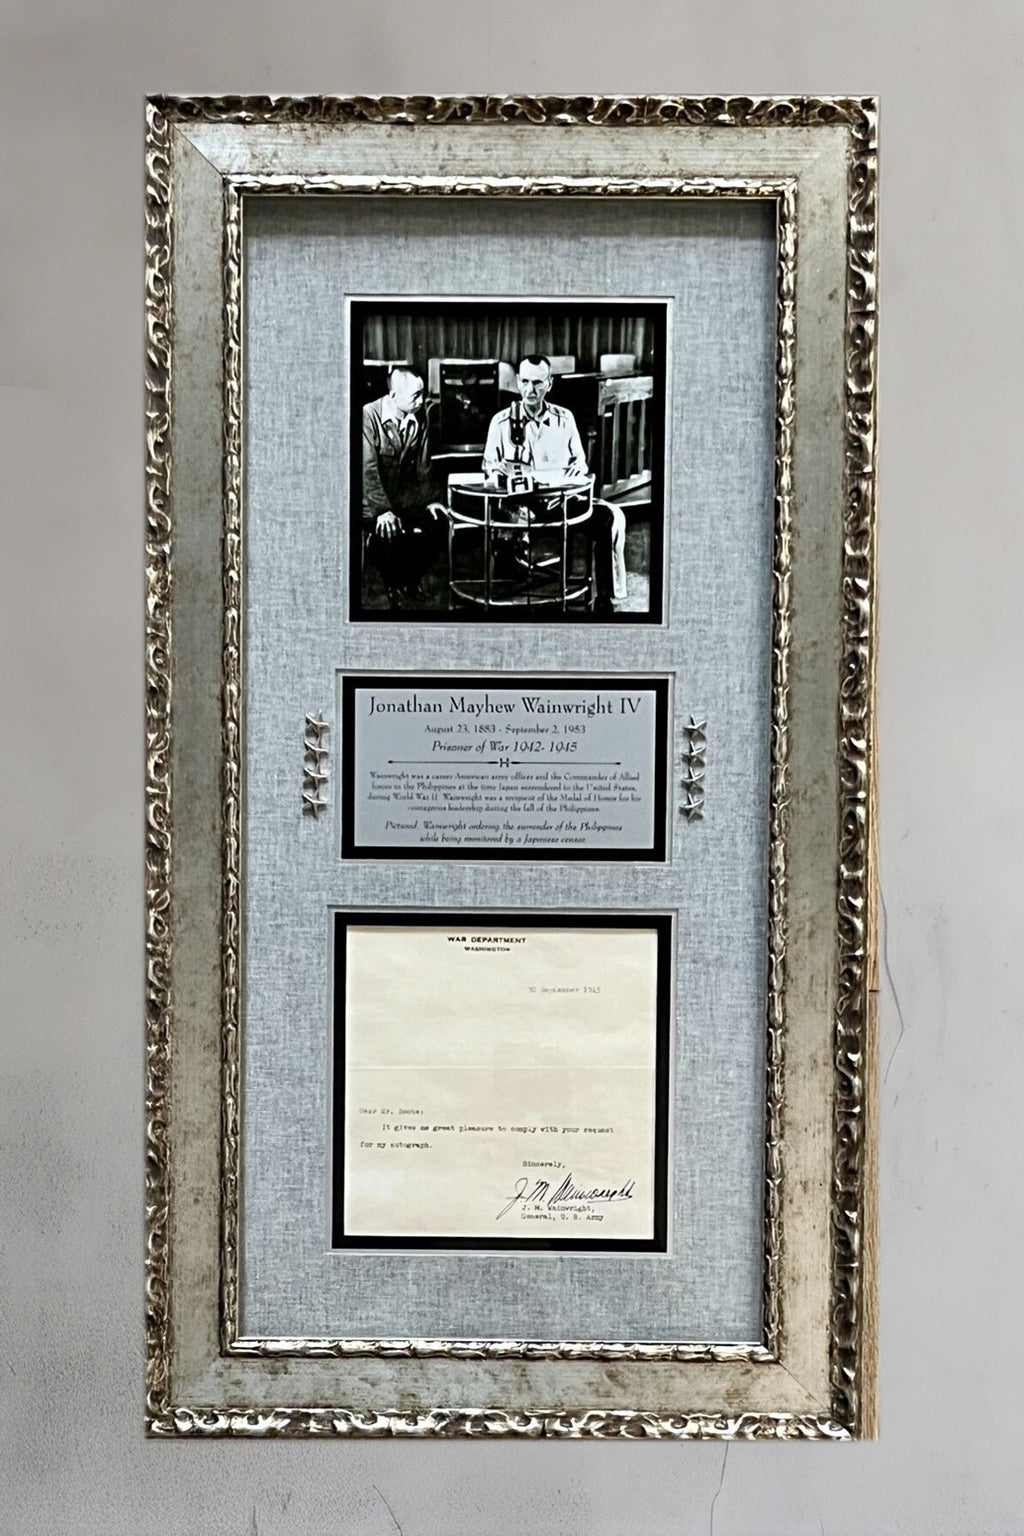 Jonathan Mayhew Wainwright IV
August 23, 1883 - September 2, 1953
Prisoner of War 1942-1945
H
Wainwright was a career American army officer and the Commander of Allied
forces in the Philippines at the time Japan surrendered to the United States,
during World War II. Wainwright was a recipient of the Medal of Honor for his
courageous leadership during the fall of the Philippines.
Pictured: Wainwright ordering the surrender of the Philippines
while being monitored by a Japanese censor.
WAR DEPARTMENT
WASHINGTON
30 September 1945
Dear Mr.
It gives me great pleasure to comply with your request
for my autograph.
Sincerely,
J. M. Wainwright
J. M. Wainwright,
General, U. S. Army